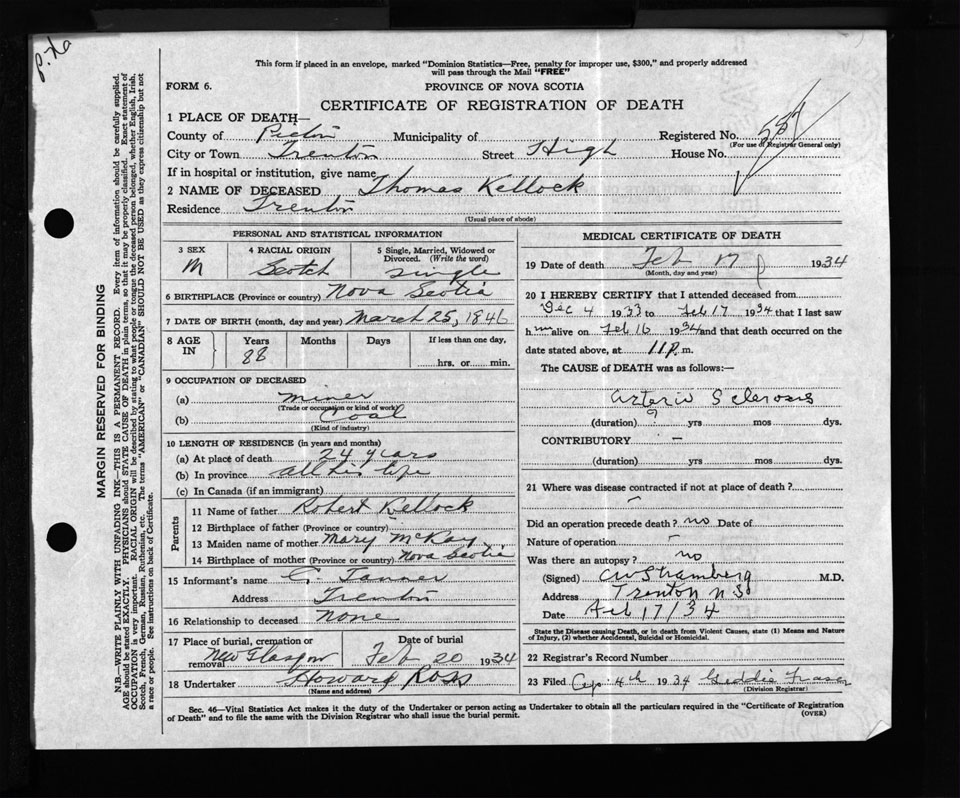 P. 7a
This form if placed in an envelope, marked "Dominion Statistics—Free, penalty for improper use, $300," and properly addressed
will pass through the Mail "FREE"
FORM 6.
PROVINCE OF NOVA SCOTIA
CERTIFICATE OF REGISTRATION OF DEATH
1 PLACE OF DEATH—
County of Pictou Municipality of Registered No. 557
(For use of Registrar General only)
City or Town Trenton Street High House No.
If in hospital or institution, give name
2 NAME OF DECEASED Thomas Kellock
Residence Trenton
(Usual place of abode)
PERSONAL AND STATISTICAL INFORMATION
3 SEX
M
4 RACIAL ORIGIN
Scotch
5 Single, Married, Widowed or
Divorced. (Write the word)
single
6 BIRTHPLACE (Province or country) Nova Scotia
7 DATE OF BIRTH (month, day and year) March 25, 1846
8 AGE
IN
Years
88
Months
Days
If less than one day,
hrs. or min.
9 OCCUPATION OF DECEASED
(a) miner
(Trade or occupation or kind of work)
(b) Coal
(Kind of industry)
10 LENGTH OF RESIDENCE (in years and months)
(a) At place of death 24 years
(b) In province all his life
(c) In Canada (if an immigrant)
Parents
11 Name of father Robert Kellock
12 Birthplace of father (Province or country)
13 Maiden name of mother Mary McKay
14 Birthplace of mother (Province or country) Nova Scotia
15 Informant's name G. Tanner
Address Trenton
16 Relationship to deceased none
17 Place of burial, cremation or
removal New Glasgow
Date of burial
Feb 20 1934
18 Undertaker Howard Ross
(Name and address)
MEDICAL CERTIFICATE OF DEATH
19 Date of death Feb 17 1934
(Month, day and year)
20 I HEREBY CERTIFY that I attended deceased from
Dec 4 1933 to Feb 17 1934 that I last saw
h im alive on Feb 16 1934 and that death occurred on
date stated above, at 11 p. m.
The CAUSE of DEATH was as follows:—
Arterio Sclerosis
(duration) ? yrs mos dys.
CONTRIBUTORY —
(duration) yrs mos dys.
21 Where was disease contracted if not at place of death?
–
Did an operation precede death? no Date of
Nature of operation –
Was there an autopsy? no
(Signed) M.D.
Address Trenton N S
Date Feb 17/34
State the Disease causing Death, or in death from Violent Causes, state (1) Means and Nature
of Injury, (2) whether Accidental, Suicidal or Homicidal.
22 Registrar's Record Number
23 Filed Ap. 4th 1934 Geddie Fraser
(Division Registrar)
Sec. 46—Vital Statistics Act makes it the duty of the Undertaker or person acting as Undertaker to obtain all the particulars required in the "Certificate of Registration
of Death" and to file the same with the Division Registrar who shall issue the burial permit.
(OVER)
MARGIN RESERVED FOR BINDING
N.B.—WRITE PLAINLY WITH UNFADING INK—THIS IS A PERMANENT RECORD. Every item of information should be carefully supplied.
AGE should be stated EXACTLY. PHYSICIANS should STATE CAUSE OF DEATH in plain terms, so that it may be properly classified. Exact statement of
OCCUPATION is very important. RACIAL ORIGIN will be described by stating to what people or tongue the deceased person belonged, whether English, Irish,
Scotch, French, German, Russian, Ruthenian, etc. The terms "AMERICAN" or "CANADIAN" SHOULD NOT BE USED as they express citizenship but not
a race or people. See instructions on back of Certificate.